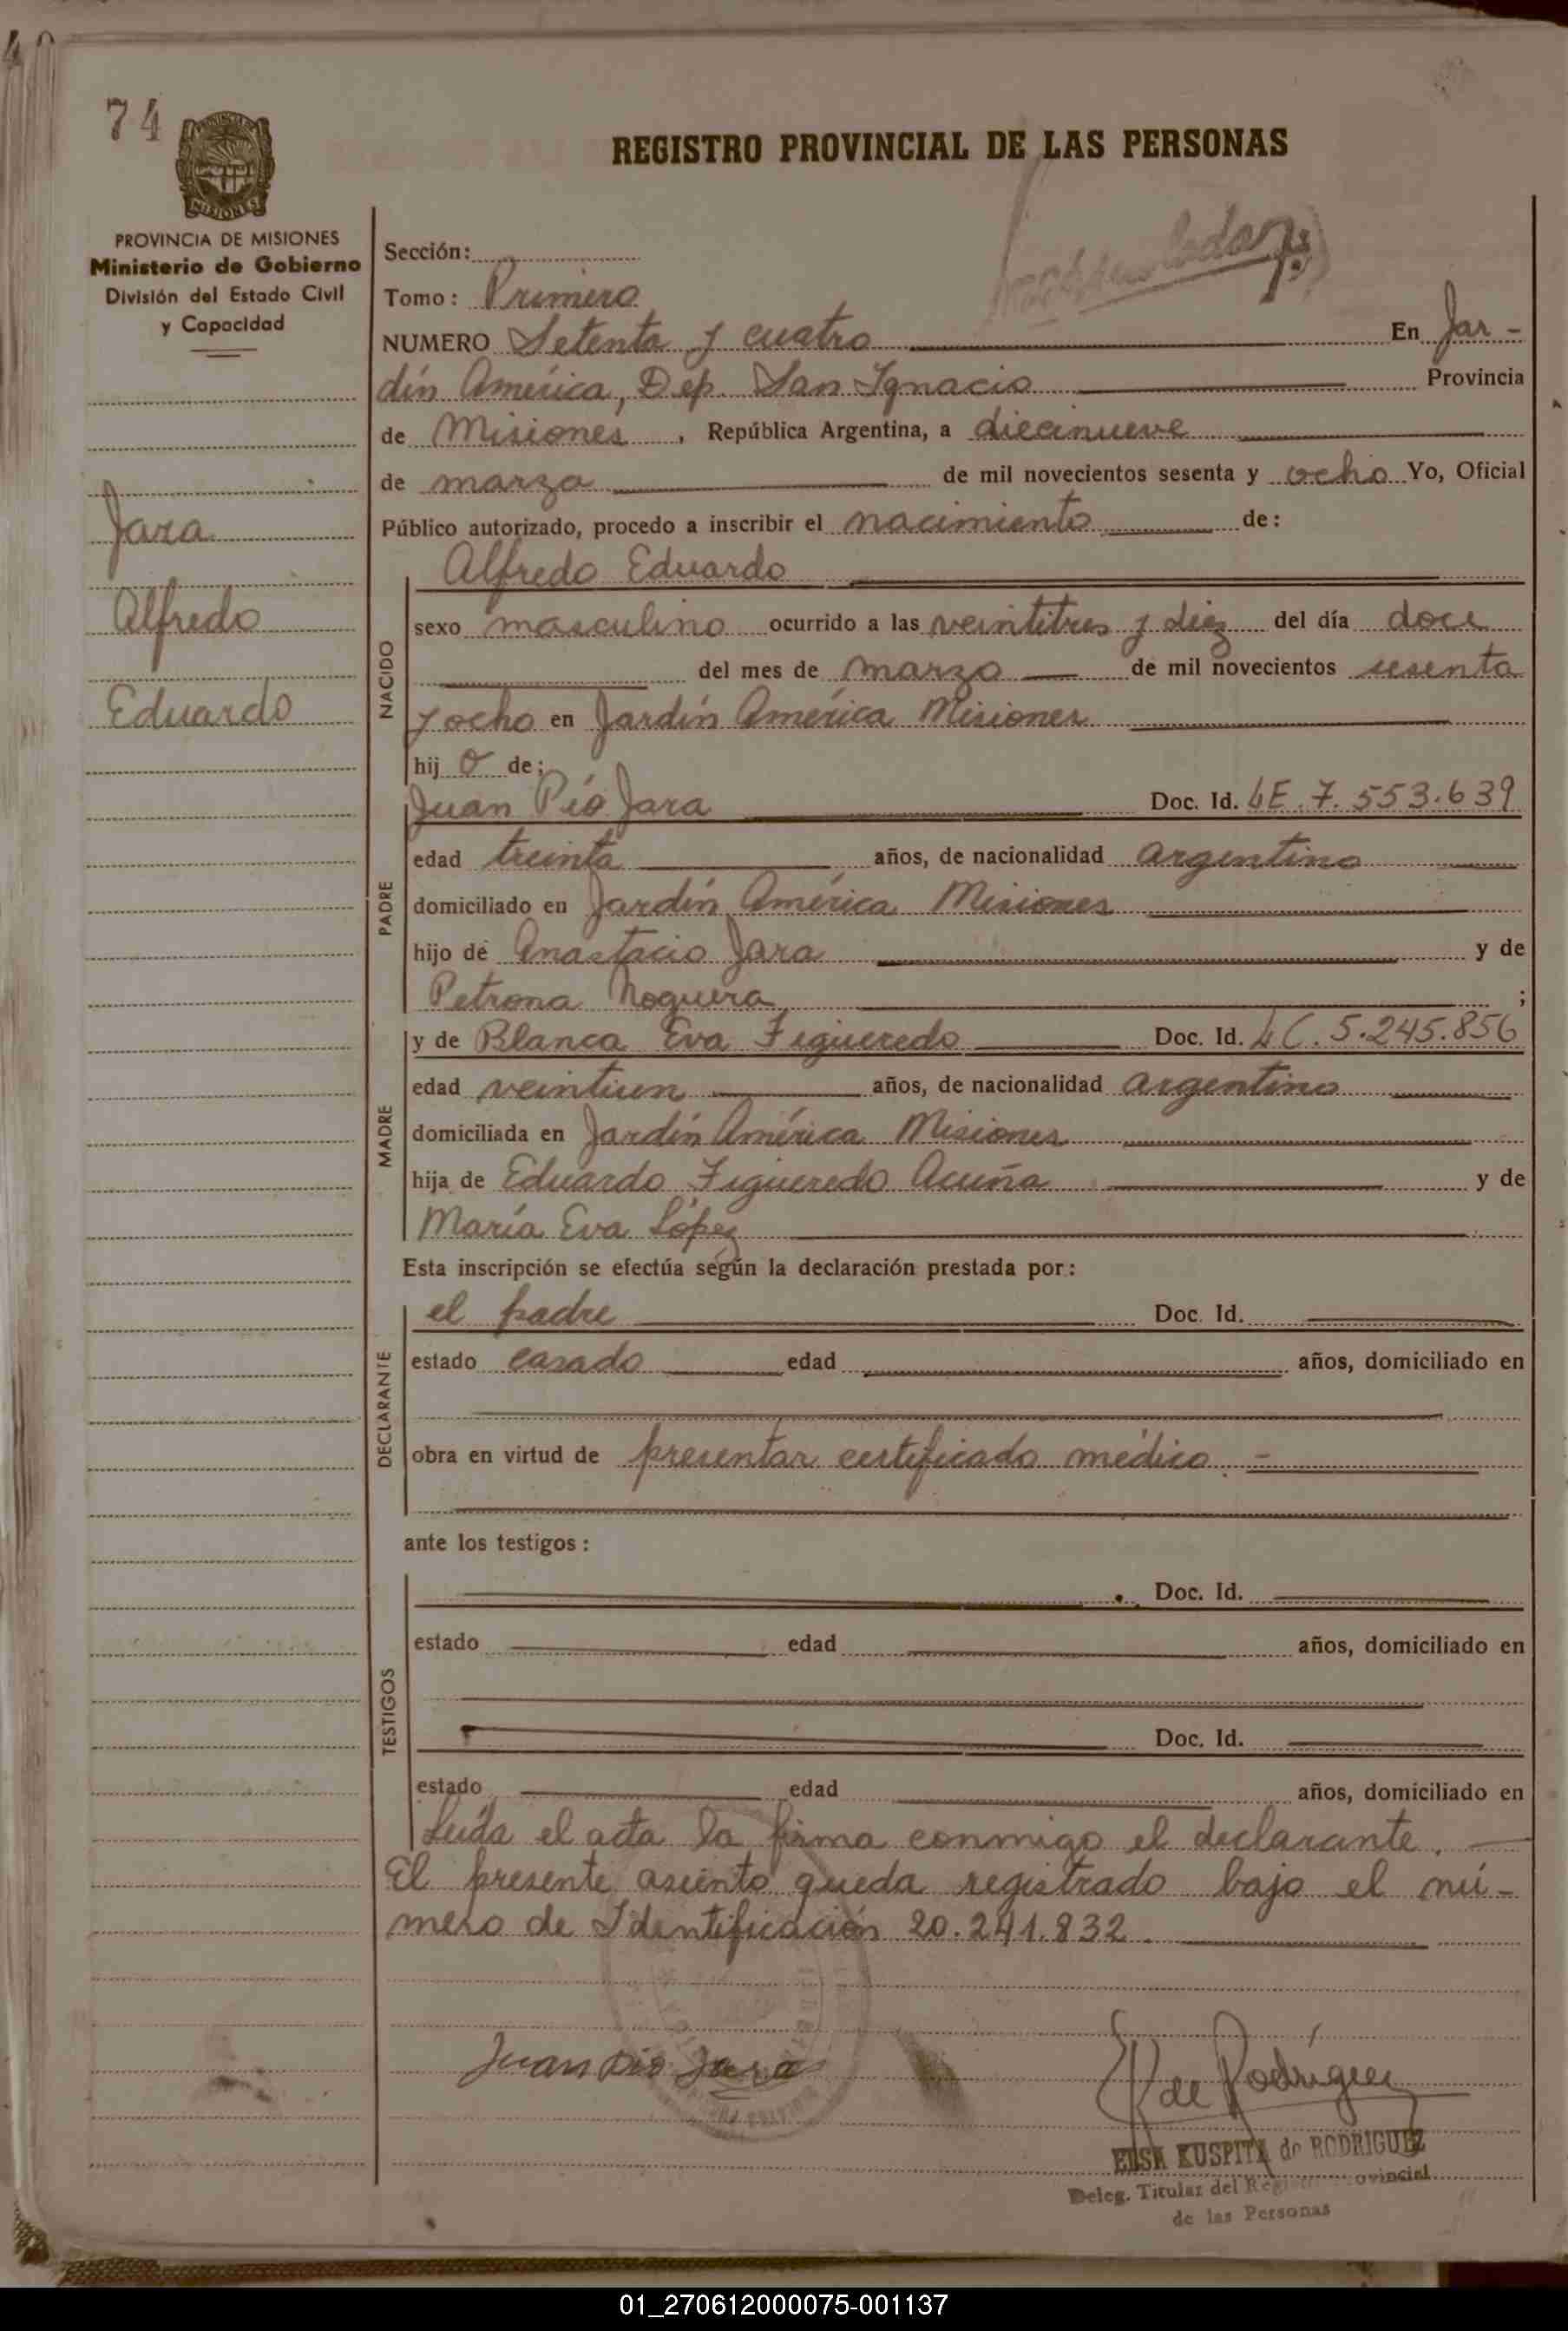 74
REGISTRO PROVINCIAL DE LAS PERSONAS
PROVINCIA DE MISIONES
Ministerio de Gobierno
División del Estado Civil
y Capacidad
Jara
Alfredo
Eduardo
Sección:
Tomo: Primero
NUMERO Setenta y cuatro En Jar-
dín América, Dep. San Ignacio Provincia
de Misiones, República Argentina, a diecinueve
de marzo de mil novecientos sesenta y ocho Yo, Oficial
Público autorizado, procedo a inscribir el nacimiento de:
Alfredo Eduardo
NACIDO
sexo masculino ocurrido a las veintitres y diez del día doce
del mes de marzo de mil novecientos sesenta
y ocho en Jardín América Misiones
hijo de:
PADRE
Juan Pío Jara Doc. Id. LE. 7.553.639
edad treinta años, de nacionalidad argentino
domiciliado en Jardín América Misiones
hijo de Anastacio Jara y de
Petrona Noguera ;
MADRE
y de Blanca Eva Figueredo Doc. Id. LC. 5.245.856
edad veintiun años, de nacionalidad argentino
domiciliada en Jardín América Misiones
hija de Eduardo Figueredo Acuña y de
María Eva López
Esta inscripción se efectúa según la declaración prestada por:
DECLARANTE
el padre Doc. Id.
estado casado edad años, domiciliado en
obra en virtud de presentar certificado médico. -
ante los testigos:
TESTIGOS
Doc. Id.
estado edad años, domiciliado en
Doc. Id.
estado edad años, domiciliado en
Leída el acta la firma conmigo el declarante.
El presente asiento queda registrado bajo el nú-
mero de Identificación 20.241.832.
Juan Pío Jara
E K de Rodríguez
ELSA KUSPITA de RODRIGUEZ
Deleg. Titular del Registro Provincial
de las Personas
01_270612000075-001137